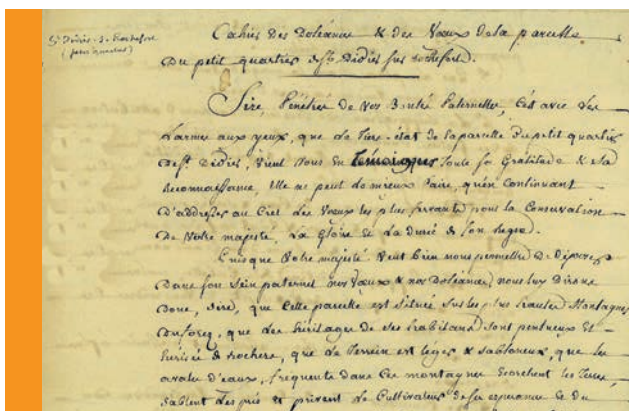 St Didier-s-Rochefort
(petit quartier)
Cahier Des Doléances & des Vœux de la parcelle
Du petit quartier de St Didier sur Rochefort.
Sire, Pénétré de Vos Bonté Paternelles, C'est avec Les
Larmes aux yeux, que Le Tiers-état de la parcelle Du petit quartier
de St Didier, Vient Vous En témoigner Toute sa Gratitude & sa
Reconnaissance, Elle ne peut de mieux faire, qu'en Continuant
D'addresser au Ciel des Vœux les plus fervants pour la Conservation
De Votre majesté, La Gloire Et La Durée de son Regne.
Puisque Votre majesté Veut bien nous permettre De Déposer
Dans son Sein paternel nos Vœux & nos Doléances, nous Luy Dirons
Donc, Sire, que Cette parcelle est située sur les plus hautes Montagnes
Du forez, que Les héritages de Ses habitans sont pentueux Et
hérissé de Rochers, que Le Terrein est léger & sabloneux, que les
avals d'eaux, fréquents dans Ces montagnes Ecorchent les Terres,
Sablent Les prés et privent Le Cultivateur de ses esperances Et du